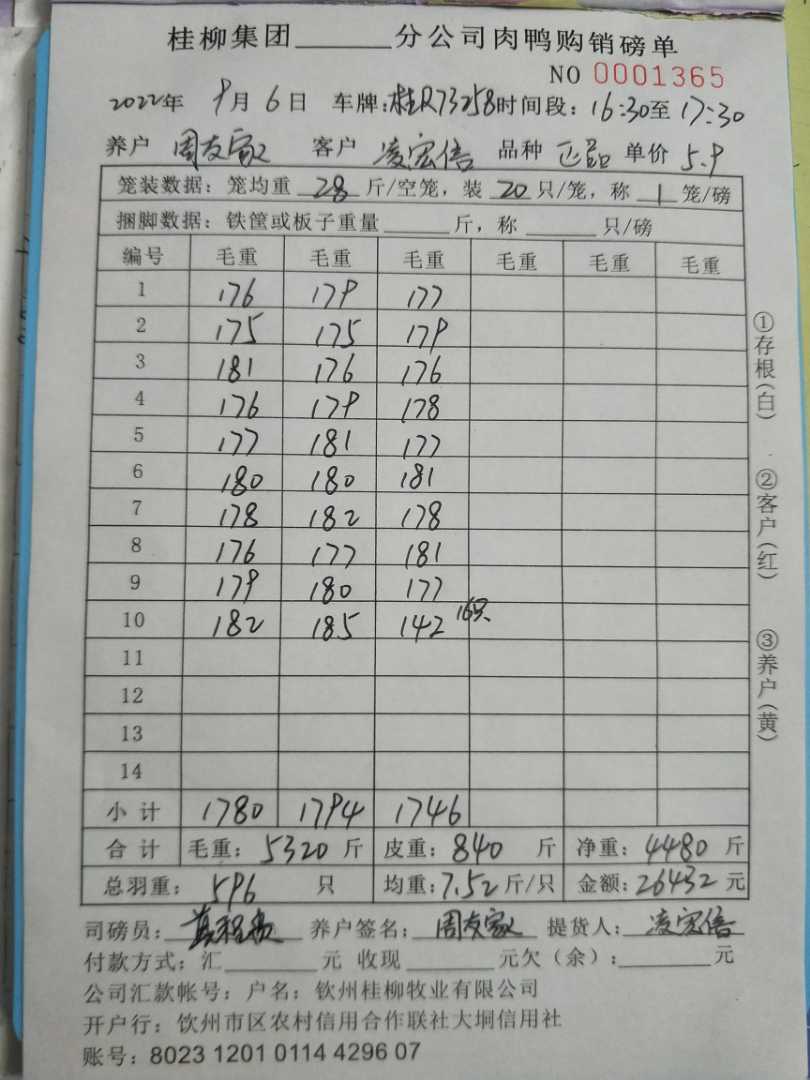 桂柳集团______分公司肉鸭购销磅单
NO 0001365
2022年 9月6日 车牌:桂R73258 时间段: 16:30至17:30
养户 周友家 客户 凌宏倍 品种 正品 单价 5.9
笼装数据: 笼均重 28 斤/空笼, 装 20 只/笼, 称 1 笼/磅
捆脚数据: 铁筐或板子重量______斤, 称______只/磅
编号 毛重 毛重 毛重 毛重 毛重 毛重
1 176 179 177
2 175 175 179
3 181 176 176
4 176 179 178
5 177 181 177
6 180 180 181
7 178 182 178
8 176 177 181
9 179 180 177
10 182 185 142 16只
11
12
13
14
小计 1780 1794 1746
合计 毛重: 5320 斤 皮重: 840 斤 净重: 4480 斤
总羽重: 596 只 均重: 7.52 斤/只 金额: 26432 元
司磅员: 养户签名: 周友家 提货人: 凌宏倍
付款方式: 汇______元 收现______元欠(余):______元
公司汇款帐号: 户名: 钦州桂柳牧业有限公司
开户行: 饮州市区农村信用合作联社大垌信用社
账号: 8023 1201 0114 4296 07
①存根(白)
②客户(红)
③养户(黄)